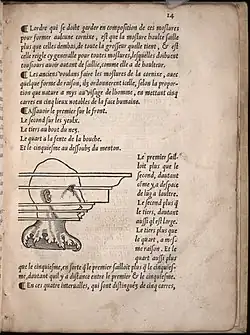 14
¶ Lordre qui se doibt garder en composition de ces moslures
pour former aulcune cornixe, est que la moslure haulte saille
plus que celles dembas, de toute la grosseur quelle tient, & est
celle reigle cy generalle pour toutes moslures, lesquelles doibuent
tousiours auoir autant de saillie, comme elle a de haulteur.
¶ Les anciens voulans faire les moslures de la cornixe, auec
quelque forme de raison, ilz ordonnerent icelle, selon la proportion
que nature a mys au visage de lhomme, en mettant cinq
carres en cinq lieux notables de la face humaine.
¶ Assauoir le premier sur le front.
Le second sur les yeulx.
Le tiers au bout du nez.
Le quart a la fente de la bouche.
Et le cinquiesme au dessoubz du menton.
Le premier sail-
loit plus que le
second, dautant
cõme y a despace
de luy a laultre.
Le second plus q̃
le tiers, dautant
aussi q̃l est large.
Le tiers plus que
le quart, a mes-
me raison. Et le
quart aussi plus
que le cinquiesme, en sorte q̃ le premier sailloit plus q̃ le cinquies-
me, dautant quil y a distance entre le premier & le cinquiesme.
¶ En ces quatre interualles, qui sont distinguez de cinq carres,